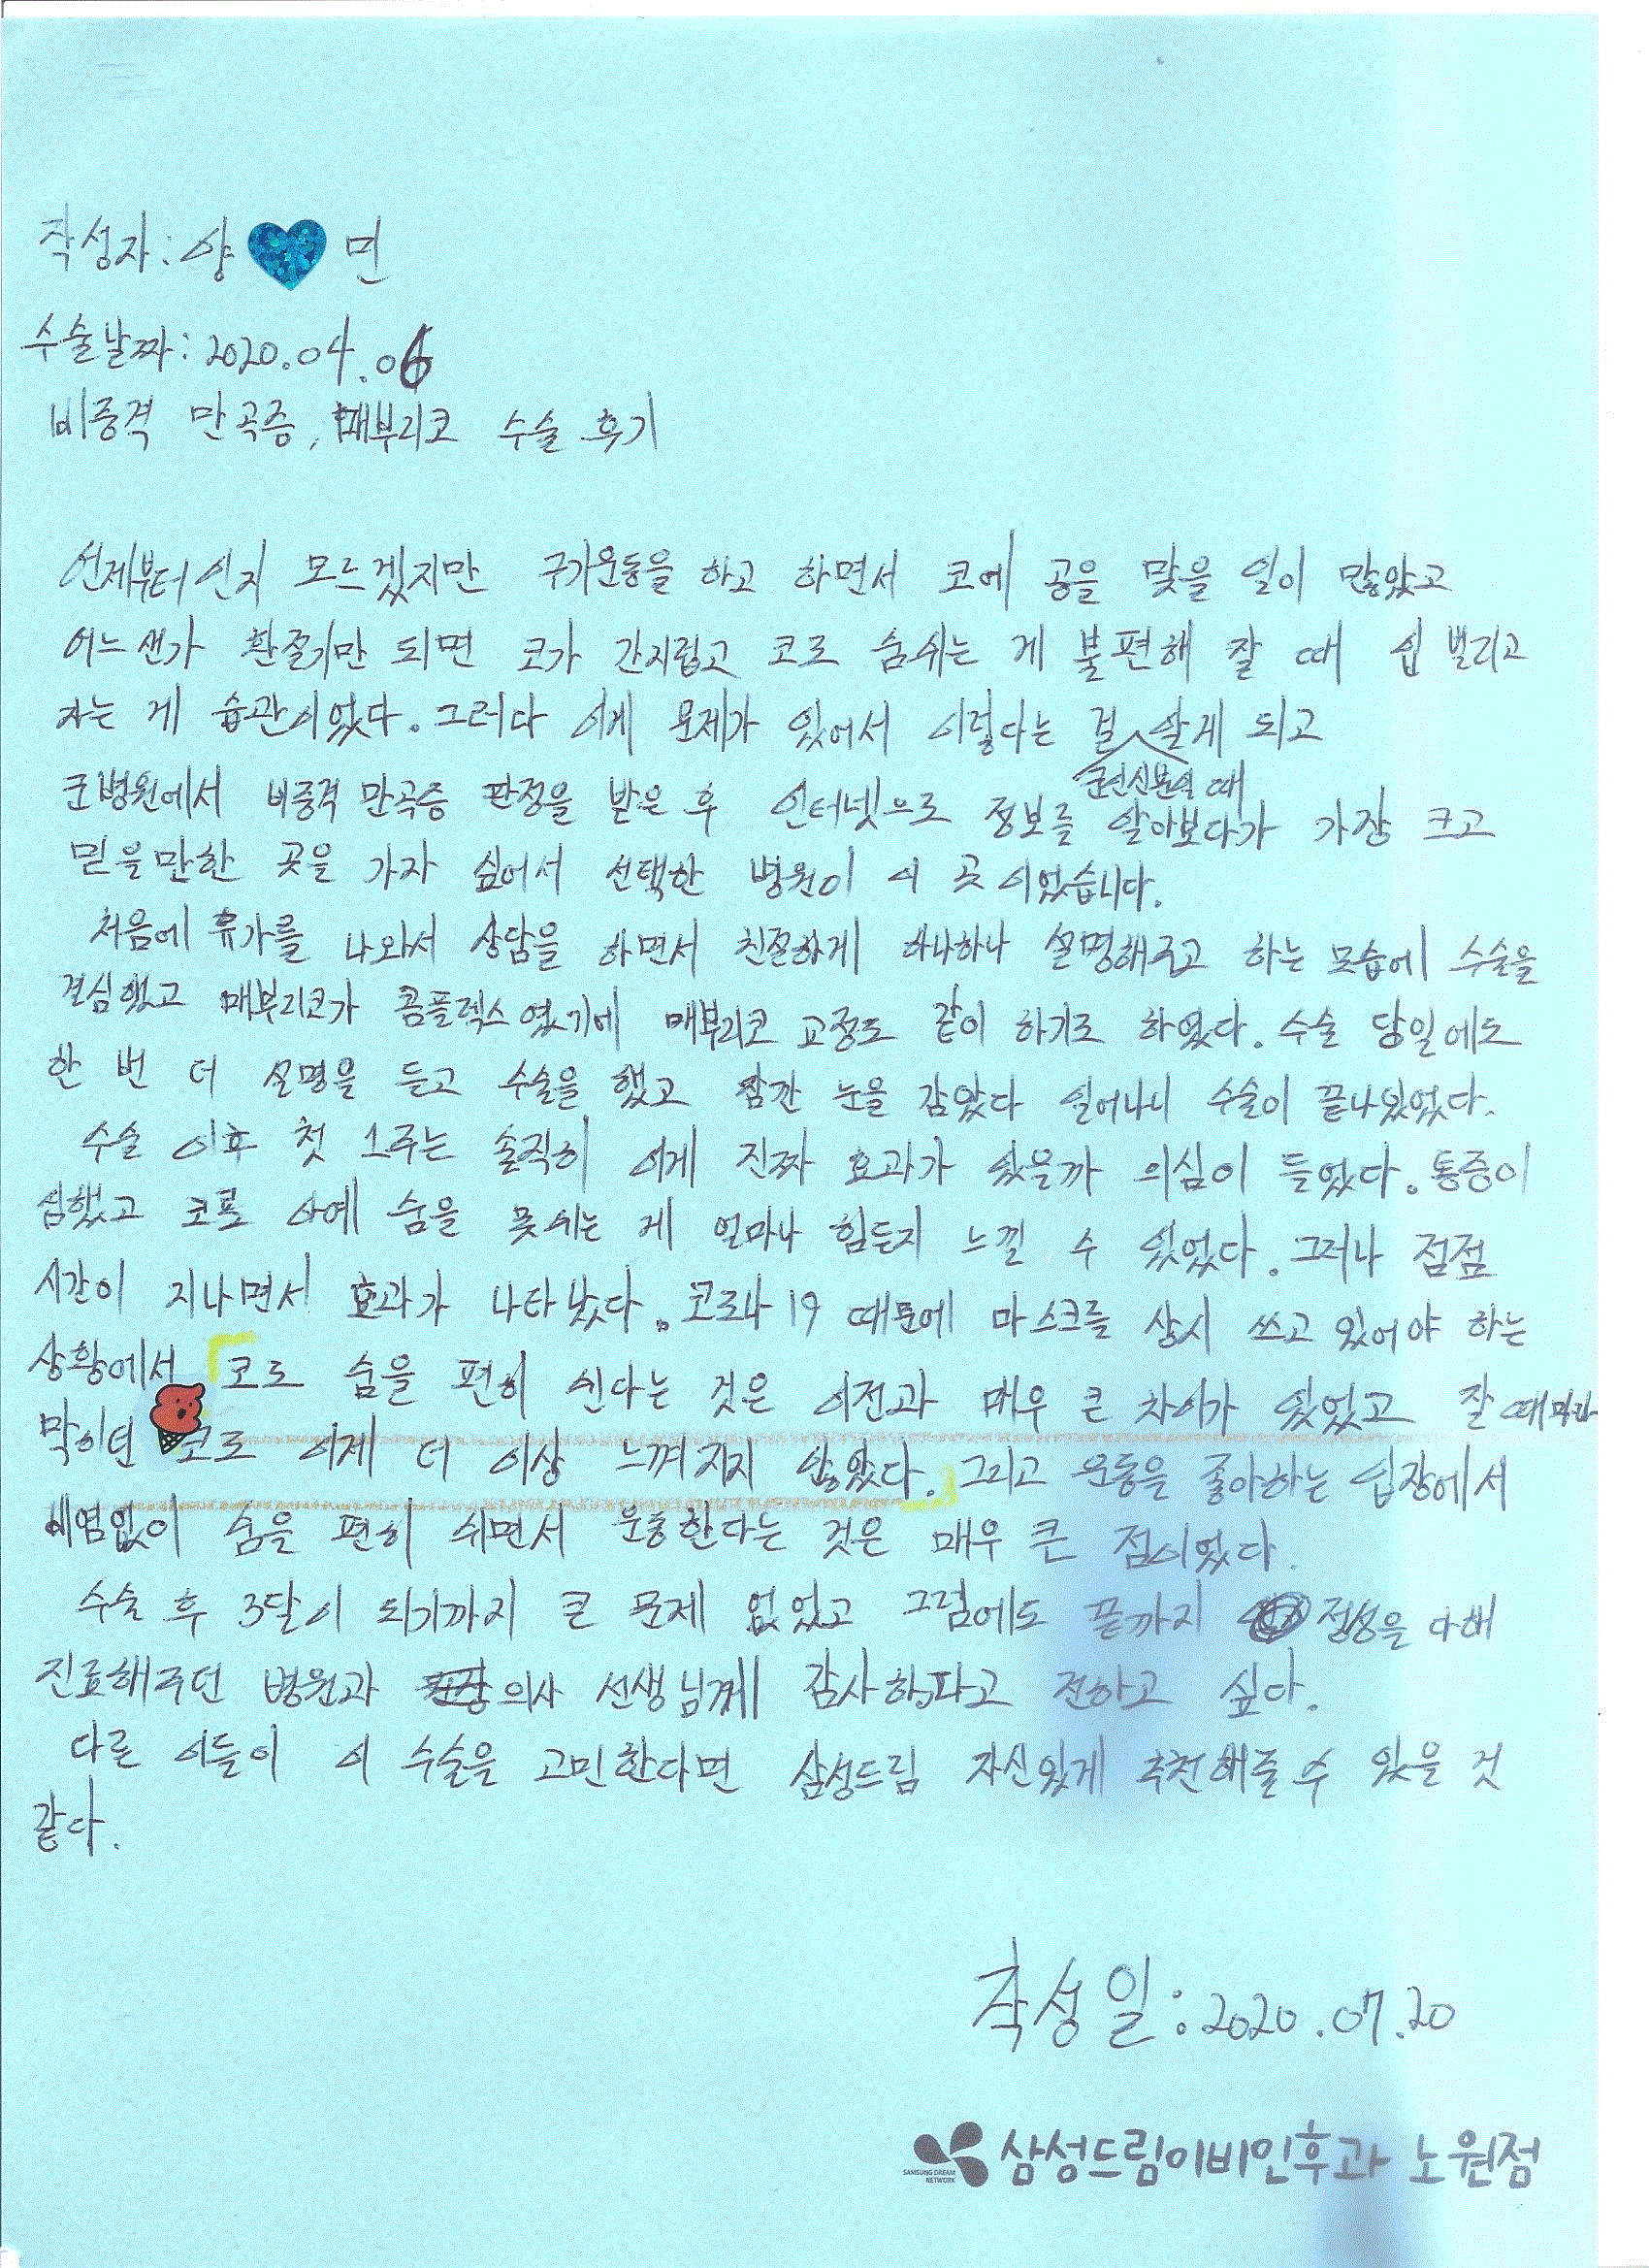 작성자: 양 민
수술날짜: 2020.04.06
비중격 만곡증, 매부리코 수술 후기
언제부터인지 모르겠지만 구기운동을 하고 하면서 코에 공을 맞을 일이 많았고
어느샌가 환절기만 되면 코가 간지럽고 코로 숨쉬는 게 불편해 잘 때 입 벌리고
자는 게 습관이었다. 그러다 이게 문제가 있어서 이렇다는 걸 알게 되고
군병원에서 비중격 만곡증 판정을 받은 후 인터넷으로 정보를 알아보다가 가장 크고
믿을만한 곳을 가자 싶어서 선택한 병원이 이 곳이었습니다.
처음에 휴가를 나와서 상담을 하면서 친절하게 하나하나 설명해주고 하는 모습에 수술을
결심했고 매부리코가 콤플렉스였기에 매부리코 교정도 같이 하기로 하였다. 수술 당일에도
한 번 더 설명을 듣고 수술을 했고 잠깐 눈을 감았다 일어나니 수술이 끝나있었다.
수술 이후 첫 1주는 솔직히 이게 진짜 효과가 있을까 의심이 들었다. 통증이
심했고 코로 아예 숨을 못쉬는 게 얼마나 힘든지 느낄 수 있었다. 그러나 점점
시간이 지나면서 효과가 나타났다. 코로나19 때문에 마스크를 상시 쓰고 있어야 하는
상황에서 「코로 숨을 편히 쉰다는 것은 이전과 매우 큰 차이가 있었고 잘 때마다
막히던 코로 이제 더 이상 느껴지지 않았다.」 그리고 운동을 좋아하는 입장에서
비염없이 숨을 편히 쉬면서 운동한다는 것은 매우 큰 점이었다.
수술 후 3달이 되기까지 큰 문제 없었고 그럼에도 끝까지 정성을 다해
진료해주던 병원과 의사 선생님께 감사하다고 전하고 싶다.
다른 이들이 이 수술을 고민한다면 삼성드림 자신있게 추천해줄 수 있을 것
같다.
작성일: 2020.07.20
SAMSUNG DREAM NETWORK
삼성드림이비인후과 노원점